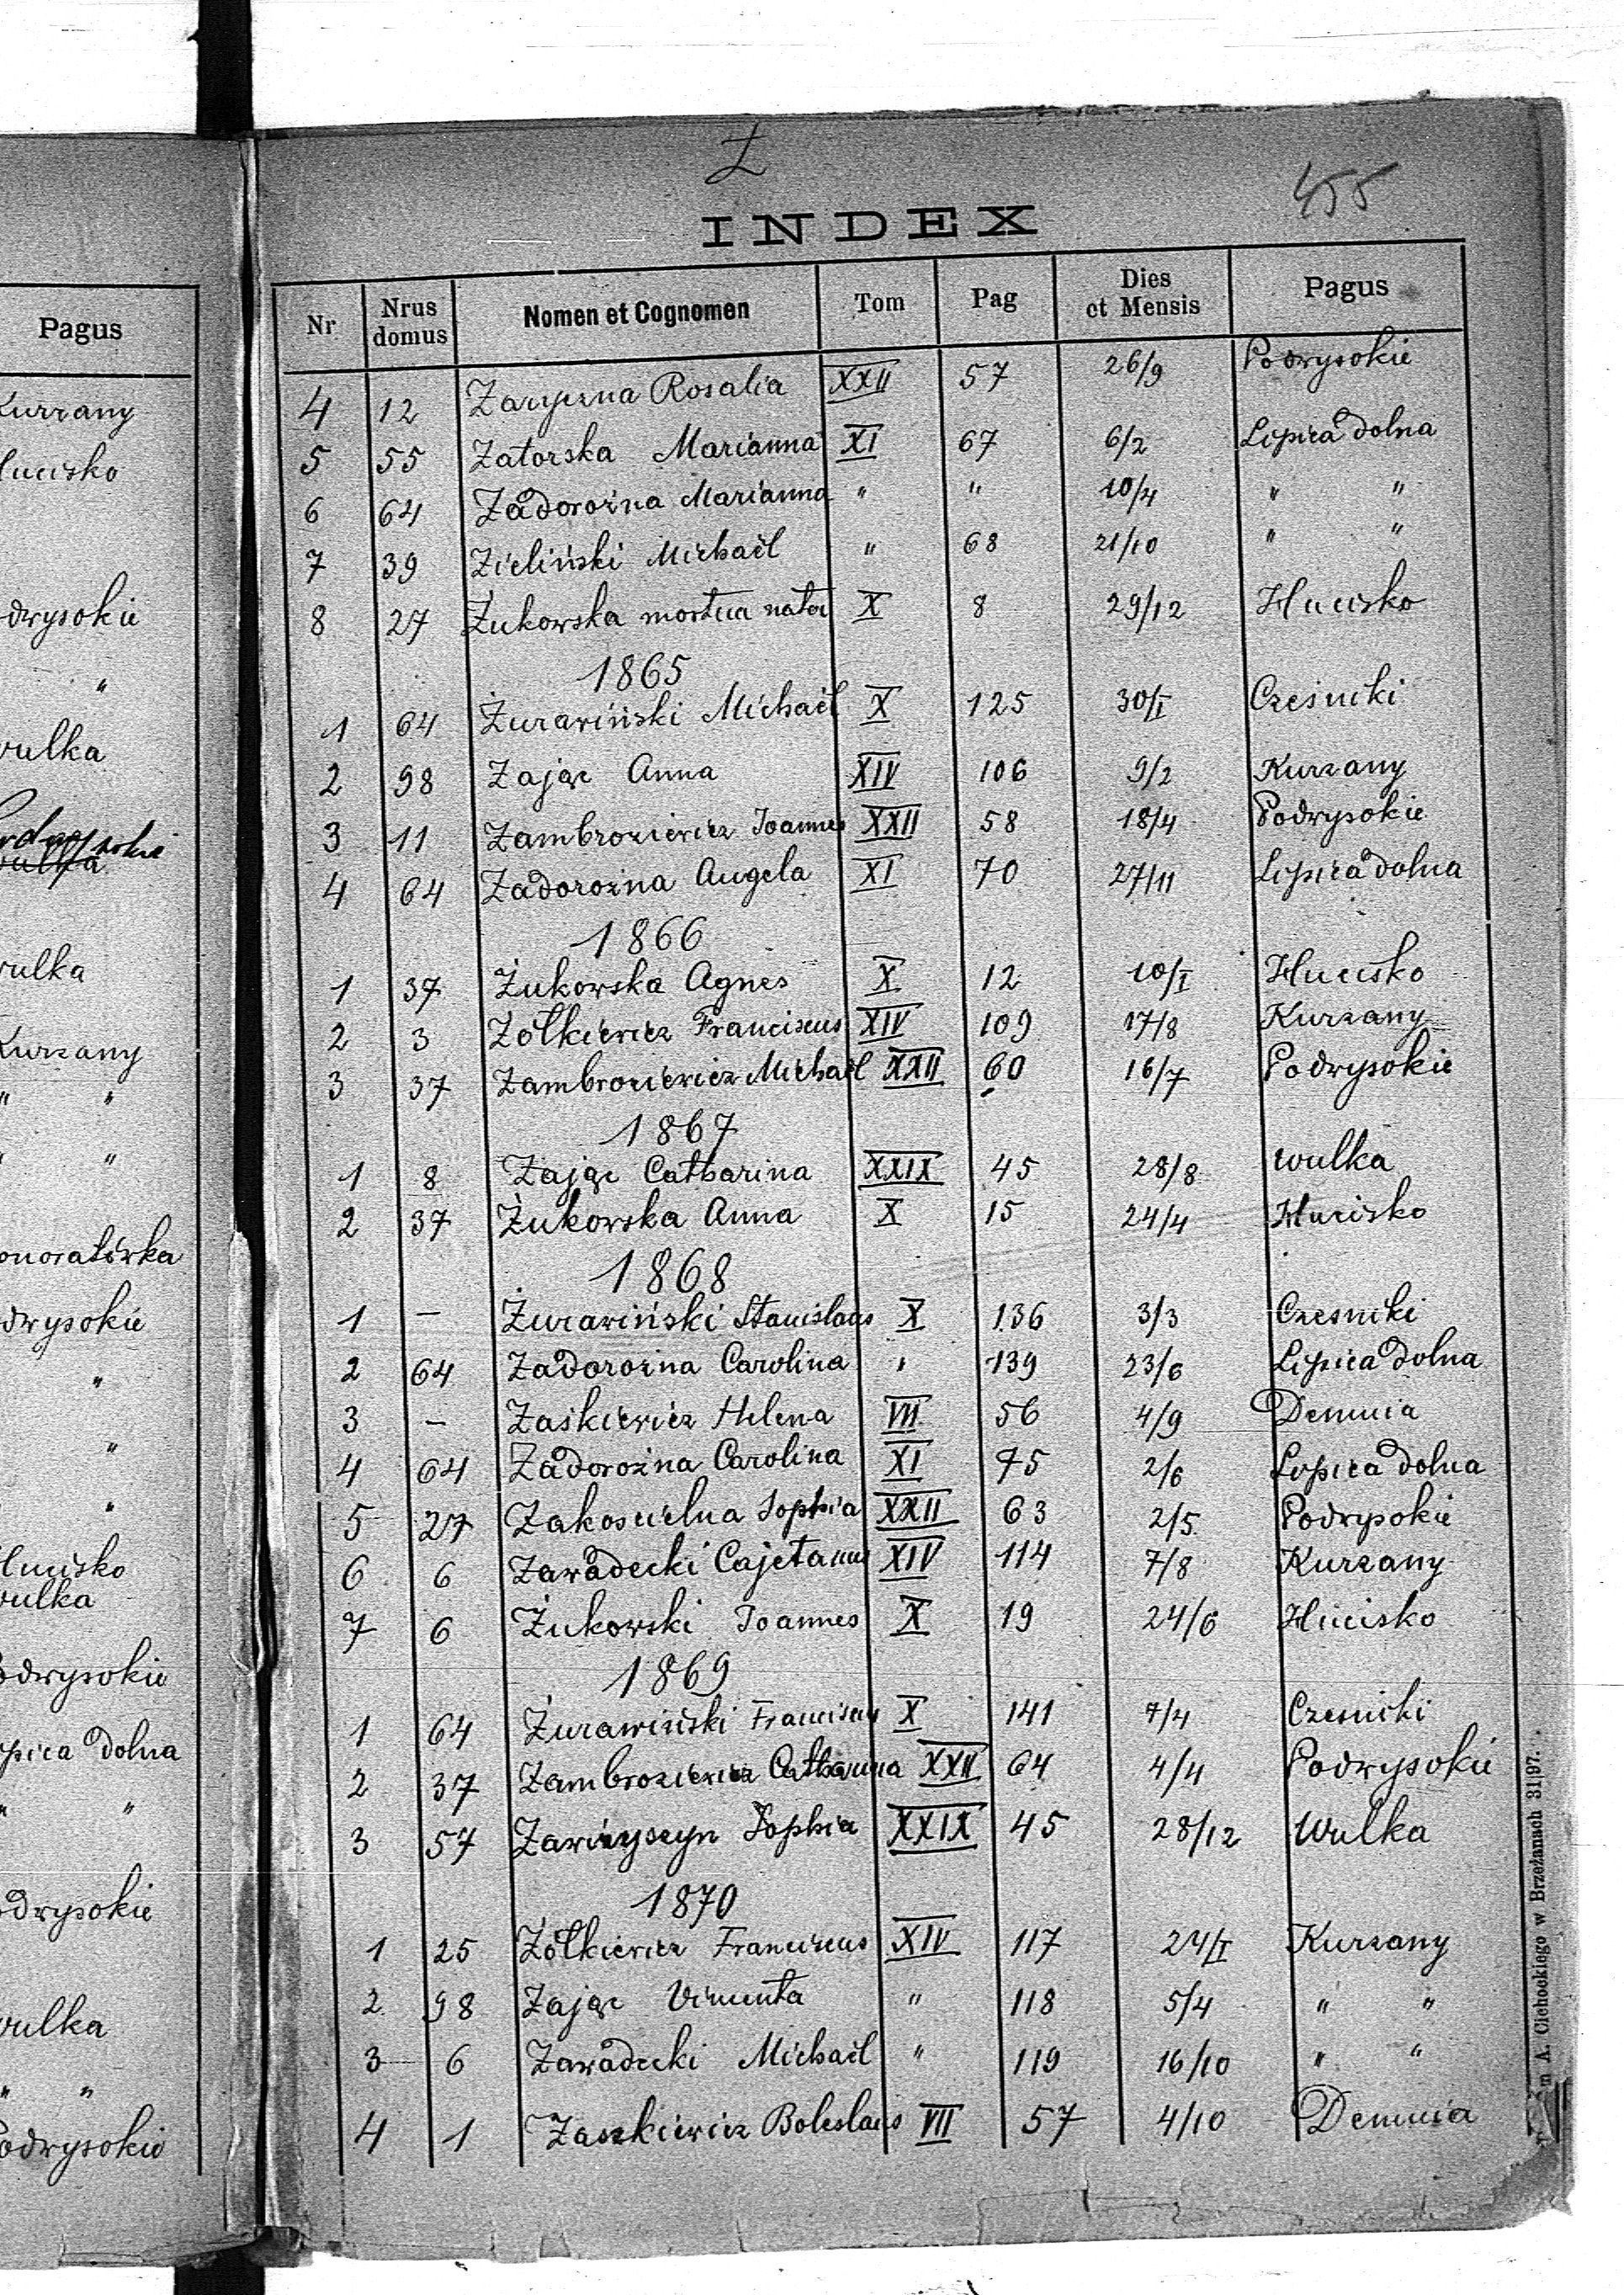 Z
455
INDEX
Nr | Nrus domus | Nomen et Cognomen | Tom | Pag | Dies et Mensis | Pagus
4 | 12 | Zaryczna Rosalia | XXII | 57 | 26/9 | Podwysokie
5 | 55 | Zatorska Marianna | XI | 67 | 6/2 | Lipica dolna
6 | 64 | Zadorożna Marianna | " | " | 10/4 | " "
7 | 39 | Zieliński Michaël | " | 68 | 21/10 | " "
8 | 27 | Żukowska mortua nata | X | 8 | 29/12 | Hucisko
1865
1 | 64 | Żurawiński Michaël | X | 125 | 30/I | Cześniki
2 | 98 | Zając Anna | XIV | 106 | 9/2 | Kurzany
3 | 11 | Zambroziewicz Joannes | XXII | 58 | 18/4 | Podwysokie
4 | 64 | Zadorożna Angela | XI | 70 | 27/11 | Lipica dolna
1866
1 | 37 | Żukowska Agnes | X | 12 | 10/I | Hucisko
2 | 3 | Żółkiewicz Franciscus | XIV | 109 | 17/8 | Kurzany
3 | 37 | Zambroziewicz Michaël | XXII | 60 | 16/7 | Podwysokie
1867
1 | 8 | Zając Catharina | XXIX | 45 | 28/8 | Wulka
2 | 37 | Żukowska Anna | X | 15 | 24/4 | Hucisko
1868
1 | – | Żurawiński Stanislaus | X | 136 | 3/3 | Czesniki
2 | 64 | Zadorożna Carolina | " | 139 | 23/6 | Lipica dolna
3 | – | Zaśkiewicz Helena | VII | 56 | 4/9 | Demnia
4 | 64 | Zadorożna Carolina | XI | 75 | 2/6 | Lipica dolna
5 | 27 | Zakoscielna Sophia | XXII | 63 | 2/5 | Podwysokie
6 | 6 | Zawadecki Cajetanus | XIV | 114 | 7/8 | Kurzany
7 | 6 | Żukowski Joannes | X | 19 | 24/6 | Hucisko
1869
1 | 64 | Żurawiński Franciscus | X | 141 | 7/4 | Czesniki
2 | 37 | Zambroziewicz Catharina | XXII | 64 | 4/4 | Podwysokie
3 | 57 | Sophia | XXIX | 45 | 28/12 | Wulka
1870
1 | 25 | Żółkiewicz Franciscus | XIV | 117 | 24/I | Kurzany
2 | 98 | Zając Vincenta | " | 118 | 5/4 | " "
3 | 6 | Zawadecki Michaël | " | 119 | 16/10 | " "
4 | 1 | Zaszkiewicz Boleslaus | VII | 57 | 4/10 | Demnia
A. Cichockiego w Brzeżanach 31|97.
Pagus
Kurzany
Hucisko
odwysokie
"
wulka
Podwysokie
wulka
wulka
Kurzany
" "
" "
onoratówka
odwysokie
"
"
"
Hucisko
wulka
odwysokie
ipica dolna
" "
odwysokie
wulka
" "
odwysokie